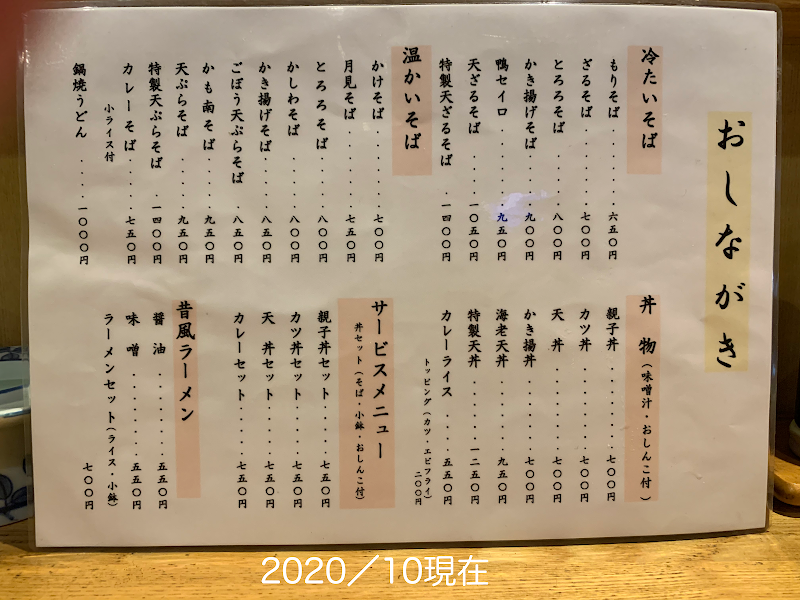 おしながき
冷たいそば
もりそば・・・・・・六五〇円
ざるそば・・・・・・七〇〇円
とろろそば・・・・・八〇〇円
かき揚げそば・・・・九〇〇円
鴨セイロ・・・・・・九五〇円
天ざるそば・・・・一〇五〇円
特製天ざるそば・・一四〇〇円
温かいそば
かけそば・・・・・・七〇〇円
月見そば・・・・・・七五〇円
とろろそば・・・・・八〇〇円
かしわそば・・・・・八〇〇円
かき揚げそば・・・・八五〇円
ごぼう天ぷらそば・・八五〇円
かも南そば・・・・・九五〇円
天ぷらそば・・・・・九五〇円
特製天ぷらそば・・一四〇〇円
カレーそば・・・・・七五〇円
小ライス付
鍋焼うどん・・・・一〇〇〇円
丼 物(味噌汁・おしんこ付)
親子丼・・・・・・・七〇〇円
カツ丼・・・・・・・七〇〇円
天 丼・・・・・・・七〇〇円
かき揚丼・・・・・・七〇〇円
海老天丼・・・・・・九五〇円
特製天丼・・・・・一二五〇円
カレーライス・・・・五五〇円
トッピング(カツ・エビフライ)
二〇〇円
サービスメニュー
丼セット(そば・小鉢・おしんこ付)
親子丼セット・・・・七五〇円
カツ丼セット・・・・七五〇円
天 丼セット・・・・七五〇円
カレーセット・・・・七五〇円
昔風ラーメン
醤 油・・・・・・・五五〇円
味 噌・・・・・・・五五〇円
ラーメンセット(ライス・小鉢)
七〇〇円
2020／10現在